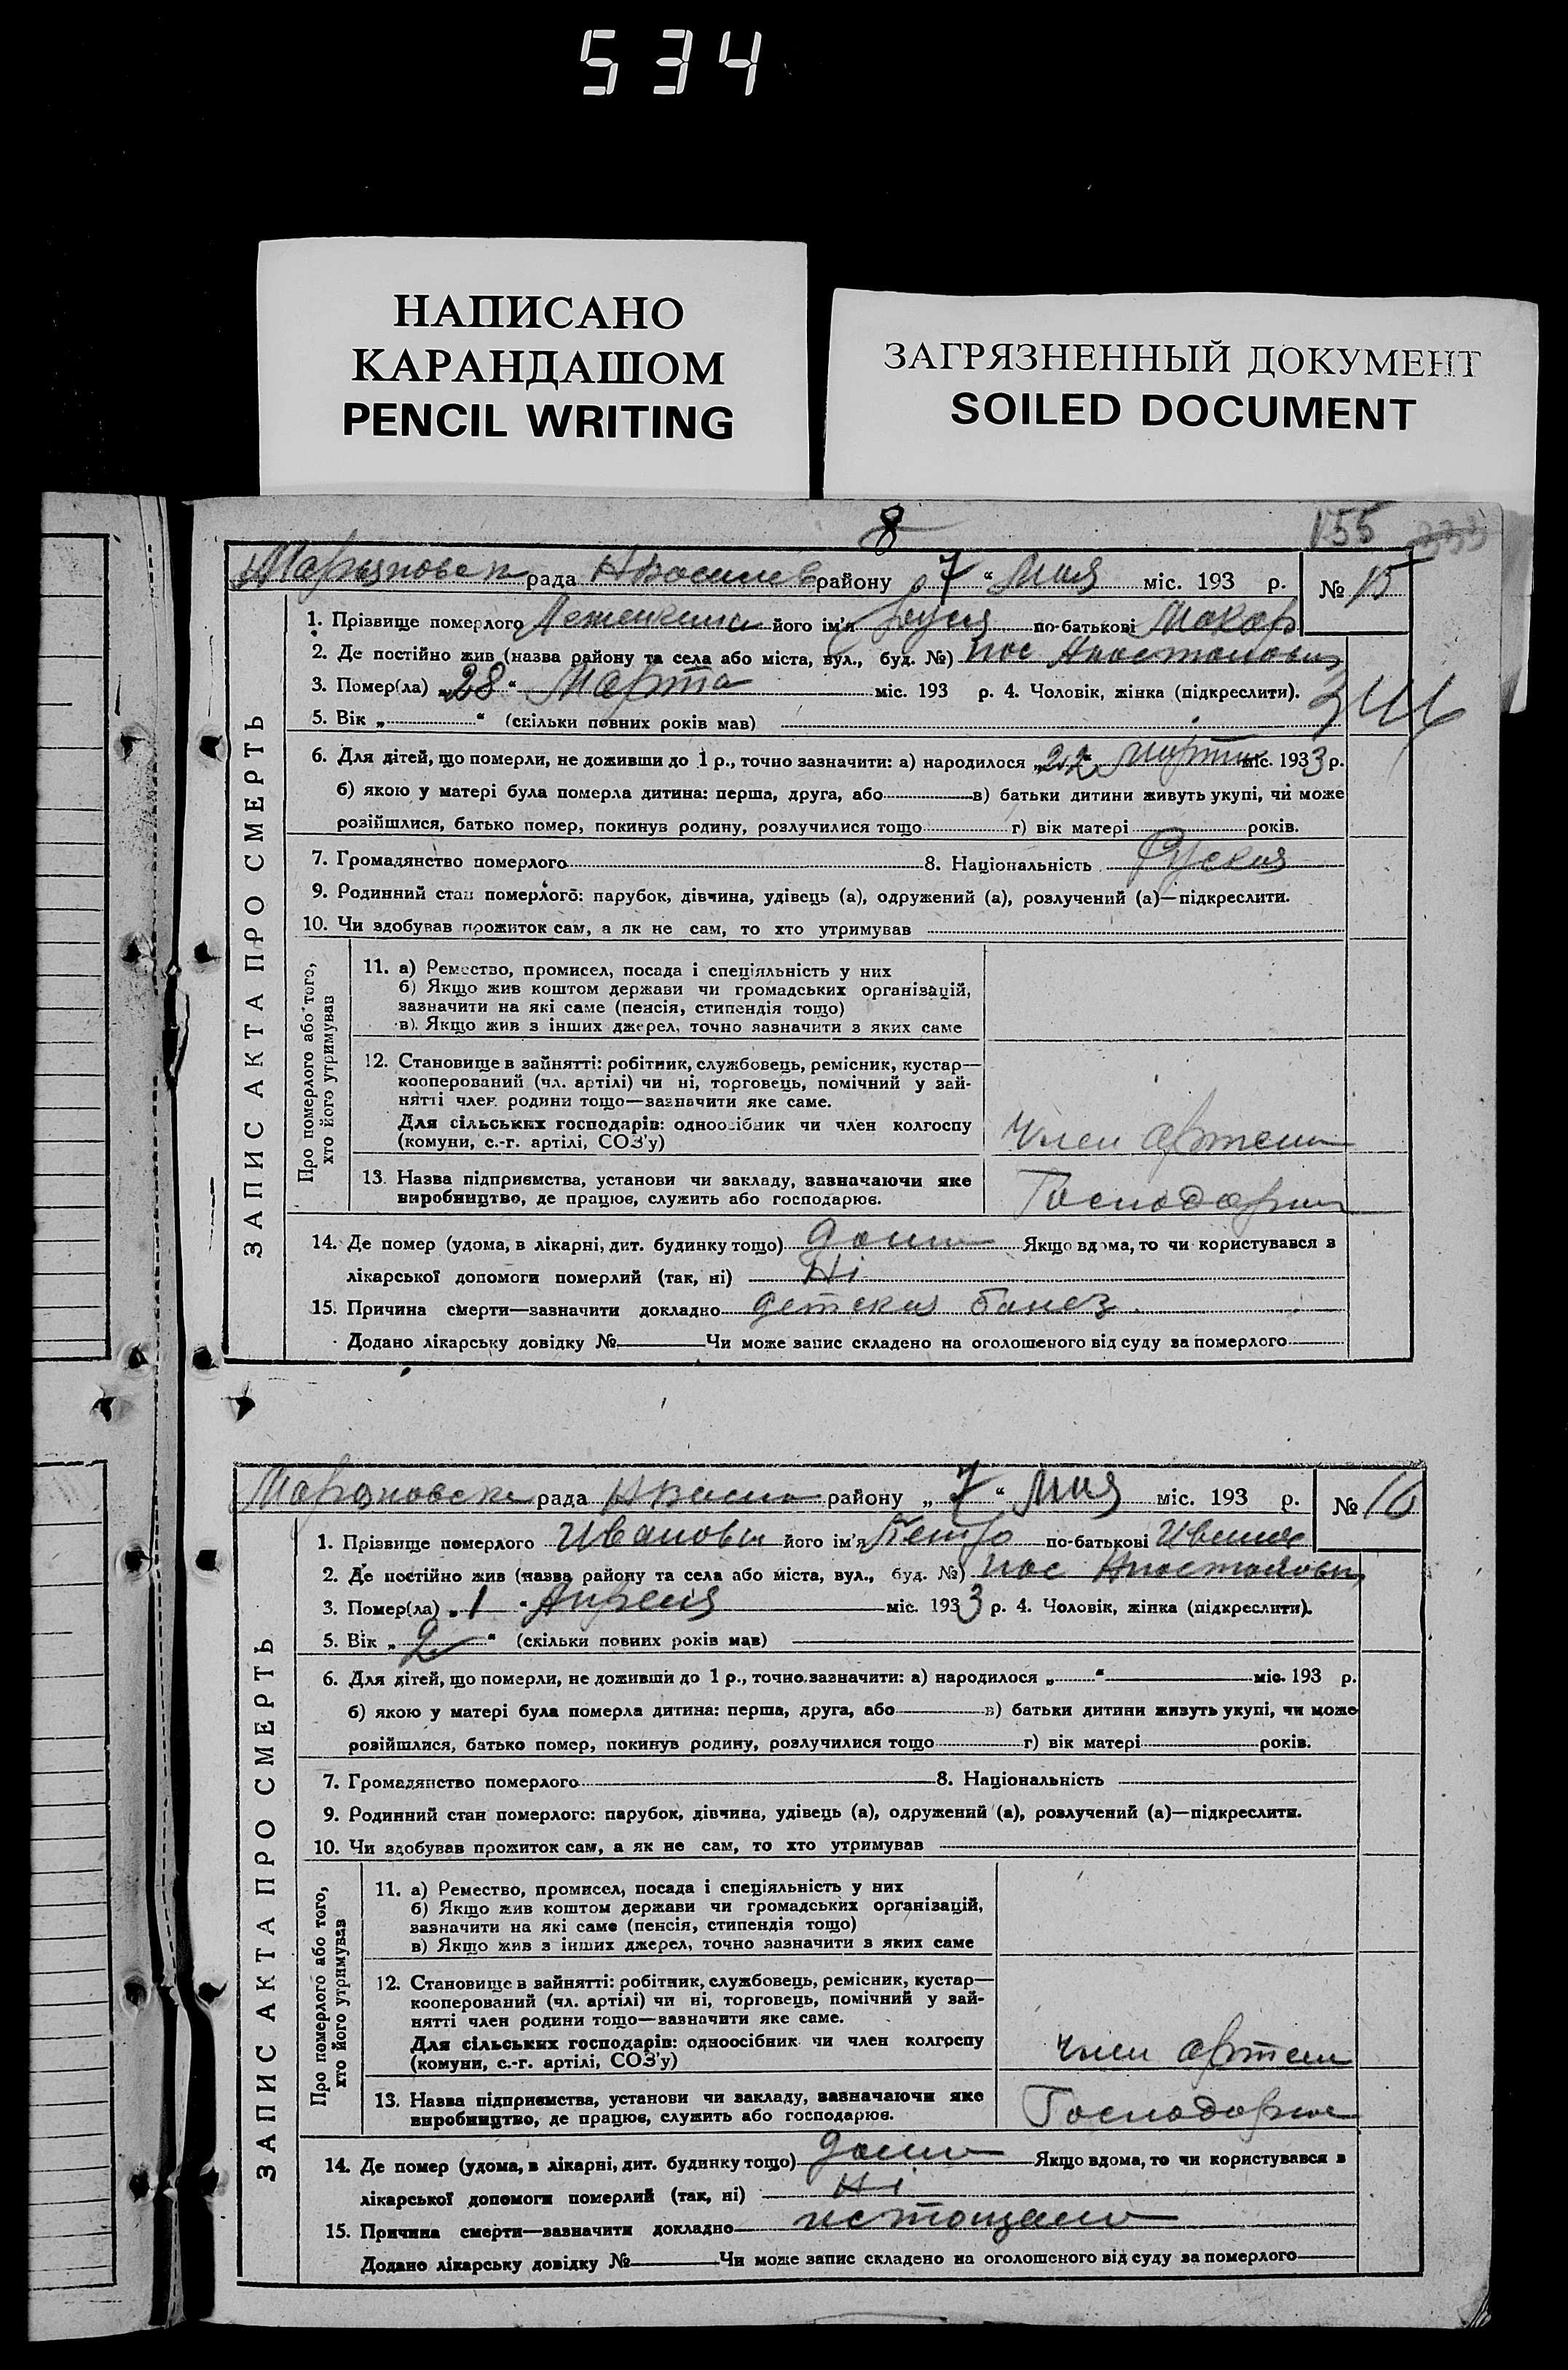 534
НАПИСАНО
КАРАНДАШОМ
PENCIL WRITING
ЗАГРЯЗНЕННЫЙ ДОКУМЕНТ
SOILED DOCUMENT
8
155
рада району 7 “ Мая міс. 193 р. № 15
1. Прізвище померлого його ім'я по-батькові Макар
2. Де постійно жив (назва району та села або міста, вул., буд. №) пос
3. Помер(ла) „ 28 “ Марта міс. 193 р. 4. Чоловік, жінка (підкреслити).
5. Вік „ “ (скільки повних років мав)
6. Для дітей, що померли, не доживши до 1 р., точно зазначити: а) народилося „ 22 марта міс. 1933 р.
б) якою у матері була померла дитина: перша, друга, або в) батьки дитини живуть укупі, чи може
розійшлися, батько помер, покинув родину, розлучилися тощо г) вік матері років.
7. Громадянство померлого 8. Національність Руская
9. Родинний стан померлого: парубок, дівчина, удівець (а), одружений (а), розлучений (а)—підкреслити.
10. Чи здобував прожиток сам, а як не сам, то хто утримував
ЗАПИС АКТА ПРО СМЕРТЬ
Про померлого або того, хто його утримував
11. а) Ремество, промисел, посада і спеціяльність у них
б) Якщо жив коштом держави чи громадських організацій,
зазначити на які саме (пенсія, стипендія тощо)
в). Якщо жив з інших джерел, точно зазначити з яких саме
12. Становище в зайнятті: робітник, службовець, ремісник, кустар—
кооперований (чл. артілі) чи ні, торговець, помічний у зай-
нятті член родини тощо—зазначити яке саме.
Для сільських господарів: одноосібник чи член колгоспу
(комуни, с.-г. артілі, СОЗ'у) член артели
13. Назва підприємства, установи чи закладу, зазначаючи яке
виробництво, де працює, служить або господарює.
14. Де помер (удома, в лікарні, дит. будинку тощо) дома Якщо вдома, то чи користувався з
лікарської допомоги померлий (так, ні) Ні
15. Причина смерти—зазначити докладно детская
Додано лікарську довідку № Чи може запис складено на оголошеного від суду за померлого
рада району „ 7 “ Мая міс. 193 р. № 16
1. Прізвище померлого Иванов його ім'я Петро по-батькові
2. Де постійно жив (назва району та села або міста, вул., буд. №) пос
3. Помер(ла) „ 1 “ Апреля міс. 1933 р. 4. Чоловік, жінка (підкреслити).
5. Вік „ 2 “ (скільки повних років мав)
6. Для дітей, що померли, не доживши до 1 р., точно зазначити: а) народилося „ “ міс. 193 р.
б) якою у матері була померла дитина: перша, друга, або в) батьки дитини живуть укупі, чи може
розійшлися, батько помер, покинув родину, розлучилися тощо г) вік матері років.
7. Громадянство померлого 8. Національність
9. Родинний стан померлого: парубок, дівчина, удівець (а), одружений (а), розлучений (а)—підкреслити.
10. Чи здобував прожиток сам, а як не сам, то хто утримував
ЗАПИС АКТА ПРО СМЕРТЬ
Про померлого або того, хто його утримував
11. а) Ремество, промисел, посада і спеціяльність у них
б) Якщо жив коштом держави чи громадських організацій,
зазначити на які саме (пенсія, стипендія тощо)
в) Якщо жив з інших джерел, точно зазначити з яких саме
12. Становище в зайнятті: робітник, службовець, ремісник, кустар—
кооперований (чл. артілі) чи ні, торговець, помічний у зай-
нятті член родини тощо—зазначити яке саме.
Для сільських господарів: одноосібник чи член колгоспу
(комуни, с.-г. артілі, СОЗ'у) член артели
13. Назва підприємства, установи чи закладу, зазначаючи яке
виробництво, де працює, служить або господарює.
14. Де помер (удома, в лікарні, дит. будинку тощо) дома Якщо вдома, то чи користувався з
лікарської допомоги померлий (так, ні) Ні
15. Причина смерти—зазначити докладно
Додано лікарську довідку № Чи може запис складено на оголошеного від суду за померлого